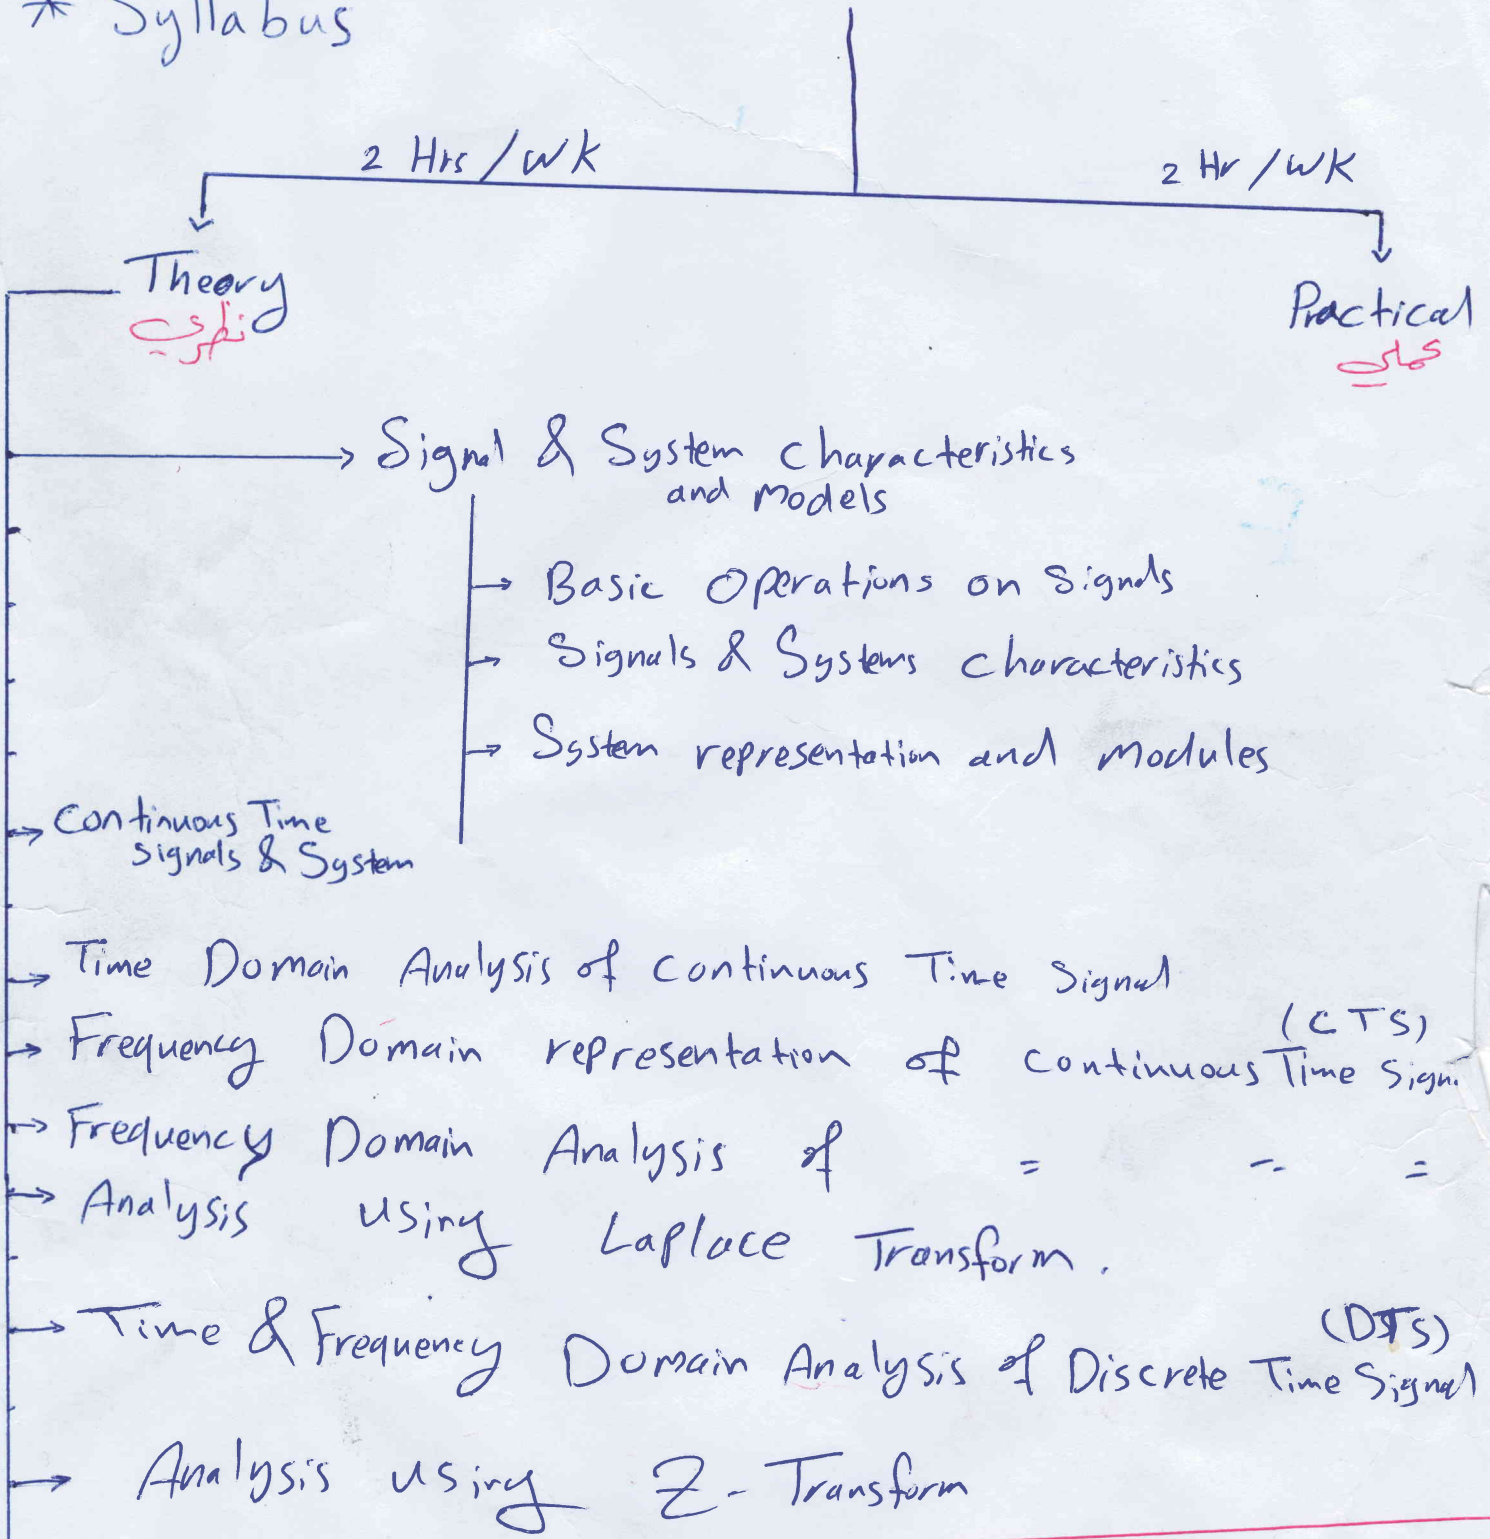 * Syllabus
2 Hrs/WK
2 Hr/WK
Theory
نظري
Practical
عملي
Signal & System characteristics
and models
Basic Operations on Signals
Signals & Systems characteristics
System representation and modules
Continuous Time
signals & System
Time Domain Analysis of continuous Time Signal
(CTS)
Frequency Domain representation of continuous Time Sign.
Frequency Domain Analysis of = = =
Analysis using Laplace Transform.
(DTS)
Time & Frequency Domain Analysis of Discrete Time Signal
Analysis using Z-Transform